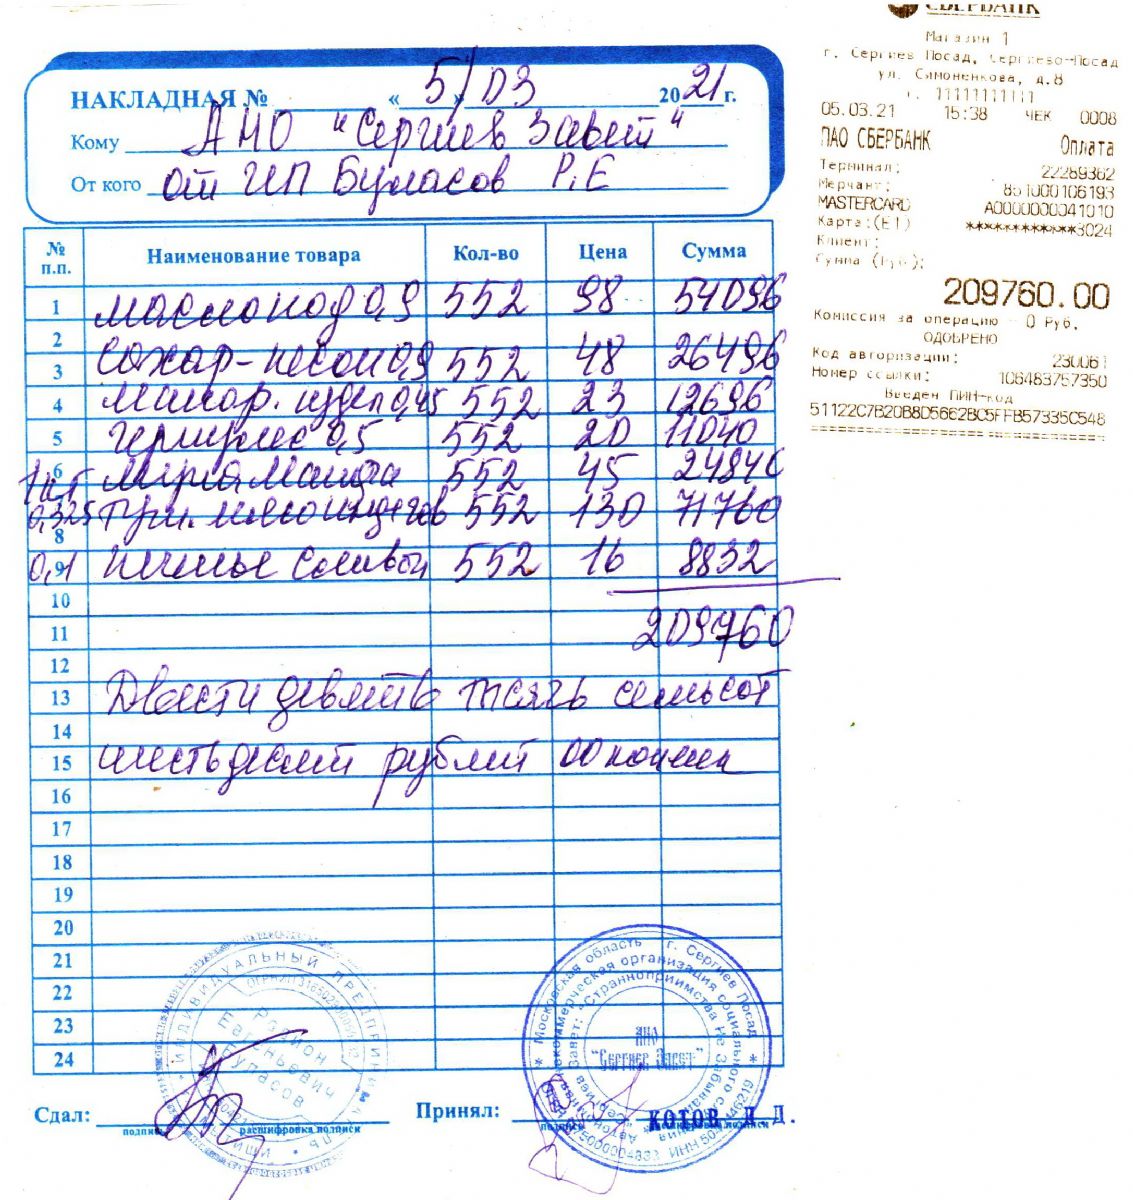 НАКЛАДНАЯ № «5» 03 2021 г.
Кому АНО "Сергиев Завет"
От кого от ИП Буласов Р.Е
№ п.п. Наименование товара Кол-во Цена Сумма
1 масло под 0,9 552 98 54096
2
3 сахар-песок 0,9 552 48 26496
4 макар. издел 0,45 552 23 12696
5 геркулес 0,5 552 20 11040
6 1кг мука Макфа 552 45 24840
0,325 552 130 71760
8
9 0,1 печенье 552 16 8832
10
11 209760
12
13 Двести девять тысяч семьсот
14
15 шестьдесят рублей 00 копеек
16
17
18
19
20
21
22
23
24
Сдал:
подпись расшифровка подписи
Принял: КОТОВ Л Д.
подпись расшифровка подписи
ИНДИВИДУАЛЬНЫЙ ПРЕДПРИНИМАТЕЛЬ
Родион
Евгеньевич
Буласов
Московская область г. Сергиев Посад
АНО
"Сергиев Завет"
СБЕРБАНК
Магазин 1
г. Сергиев Посад, Сергиево-Посад
ул. Симоненкова, д.8
т. 11111111111
05.03.21 15:38 ЧЕК 0008
ПАО СБЕРБАНК Оплата
Терминал: 22289362
Мерчант: 851000106193
MASTERCARD A0000000041010
Карта:(E1) ************3024
Клиент:
Сумма (Руб):
209760.00
Комиссия за операцию - 0 Руб.
ОДОБРЕНО
Код авторизации: 230061
Номер ссылки: 106483757350
Введен ПИН-код
51122C7B20B8D5662BC5FFB57335C548